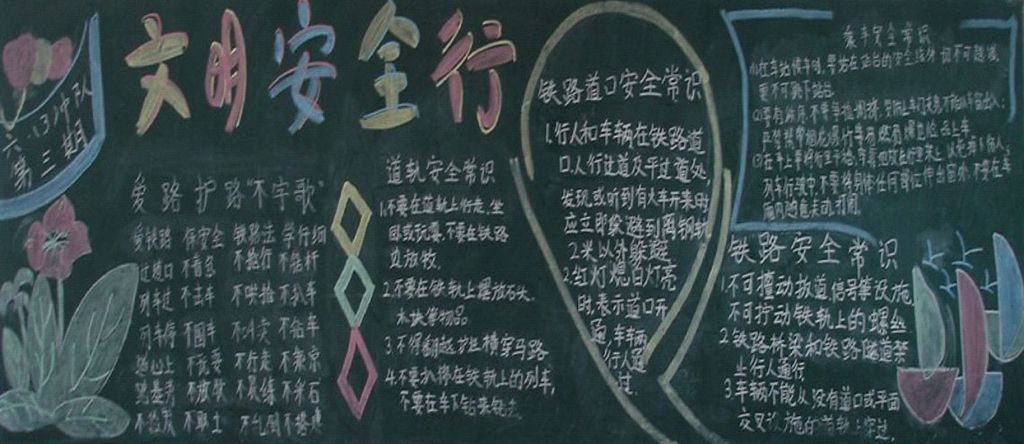 六.(3)中队
第三期
文明安全行
爱路护路"不字歌"
爱铁路 保安全 铁路法 学仔细
过道口 不着急 不抢行 不钻杆
列车过 不击车 不哄抢 不扒车
列车停 不围车 不叫卖 不钻车
不玩耍 不行走
不放牧 不采石
不取土
道轨安全常识
1.不要在道轨上行走、坐
卧或玩耍,不要在铁路
边放牧.
2.不要在铁轨上摆放石头、
木块等物品
3.不得翻越护栏横穿马路
4.不要扒停在铁轨上的列车,
不要在车下钻来钻去.
铁路道口安全常识
1.行人和车辆在铁路道
口、人行过道及平过道处
发现或听到有火车开来时
应立即躲避到离钢轨
2米以外躲避
2.红灯熄白灯亮
时,表示道口开
通,车辆
行人通
过.
乘车安全常识
(1)在车站候车时,要站在站台的安全线外,切不可越线,
更不可跳下站台.
严禁携带烟花爆竹等易燃易爆危险品上车.
列车行驶中,不要将身体任何部位伸出窗外,不要在车
厢内随意走动打闹.
铁路安全常识
1.不可擅动扳道、信号等设施,
不可拧动铁轨上的螺丝.
2.铁路桥梁和铁路隧道禁
止行人通行
3.车辆不能从没有道口或平面
交叉设施的铁轨上穿过